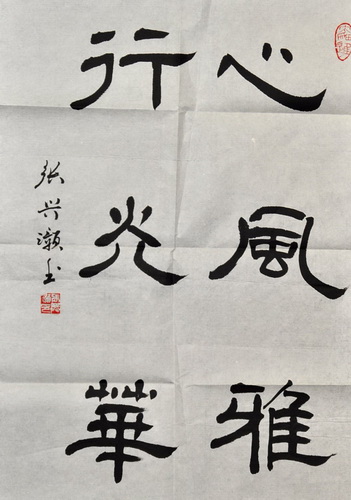 心風雅
行光華
张兴灏书